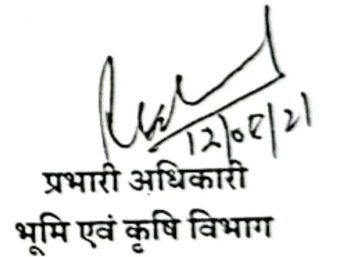 12/08/21
प्रभारी अधिकारी
भूमि एवं कृषि विभाग